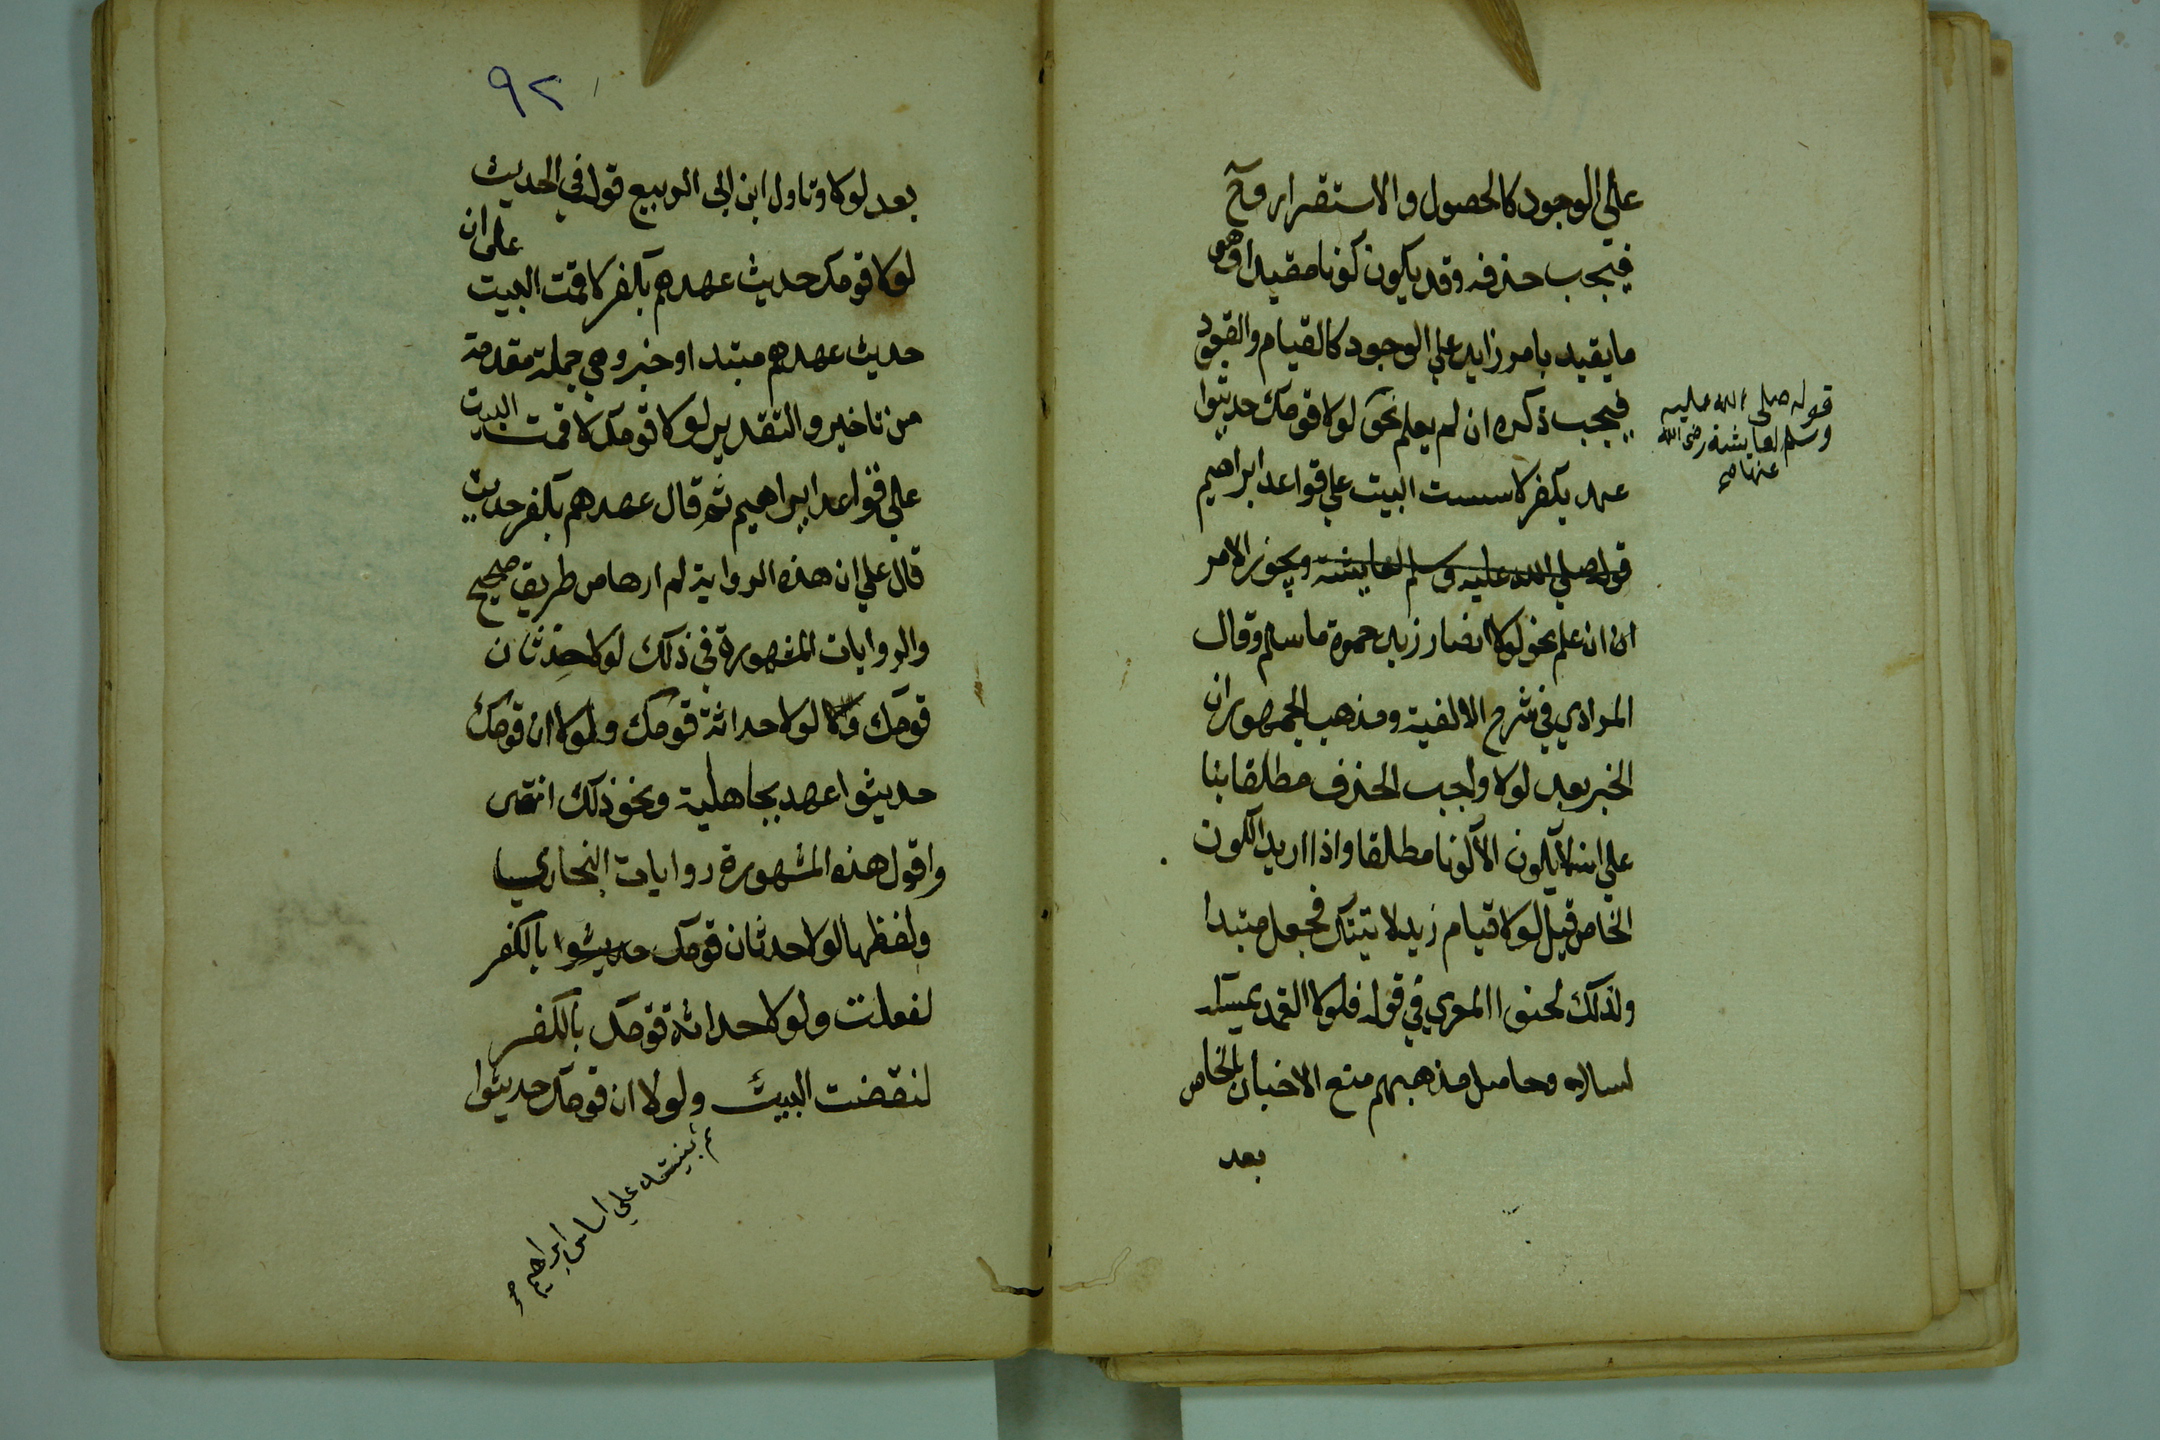 علي الوجود كالحصول والاستقرار وح
فيجب حذفه وقد يكون كونا مقيدا وهو
ما يقيد بامر زايد علي الوجود كالقيام والقعود
فيجب ذكره ان لم يعلم نحو لولا قومك حديثوا
عهد بكفر لاسست البيت علي قواعد ابراهيم
قوله صلي الله عليه وسلم لعايشة ويجوز الامر
ان ان علم نحو لولا انصار زيد حموه ما سلم وقال
المرادي في شرح الالفية ومذهب الجمهور ان
الخبر بعد لولا واجب الحذف مطلقا بنا
علي انه لا يكون الا كونا مطلقا واذا اريد الكون
الخاص قيل لولا قيام زيد لاتيتك فجعل مبتدا
ولذلك لحنوا المعري في قوله فلولا الغمد يمسكه
لسالا وحاصل مذهبهم منع الاخبار بالخاص
بعد
قوله صلى الله عليه
وسلم لعايشة رضى الله
عنها صح
٩٢
بعد لولا وتاول ابن ابى الربيع قوله في الحديث
على ان
لولا قومك حديث عهدهم بكفر لاقمت البيت
حديث عهدهم مبتدا وخبر وهي جملة مقدمة
من تاخير والتقدير لولا قومك لاقمت البيت
علي قواعد ابراهيم ثم قال عهدهم بكفر حديث
قال علي ان هذه الرواية لم ارها من طريق صحيح
والروايات المشهورة في ذلك لولا حدثان
قومك لولا حداثة قومك ولولا ان قومك
حديثوا عهد بجاهلية ونحو ذلك انتهى
واقول هذه المشهورة روايات البخاري
ولفظها لولا حدثان قومك حديثوا بالكفر
لفعلت ولولا حداثة قومك بالكفر
لنقضت البيت ولولا ان قومك حديثوا
ثم بنيته علي اساس ابراهيم صح